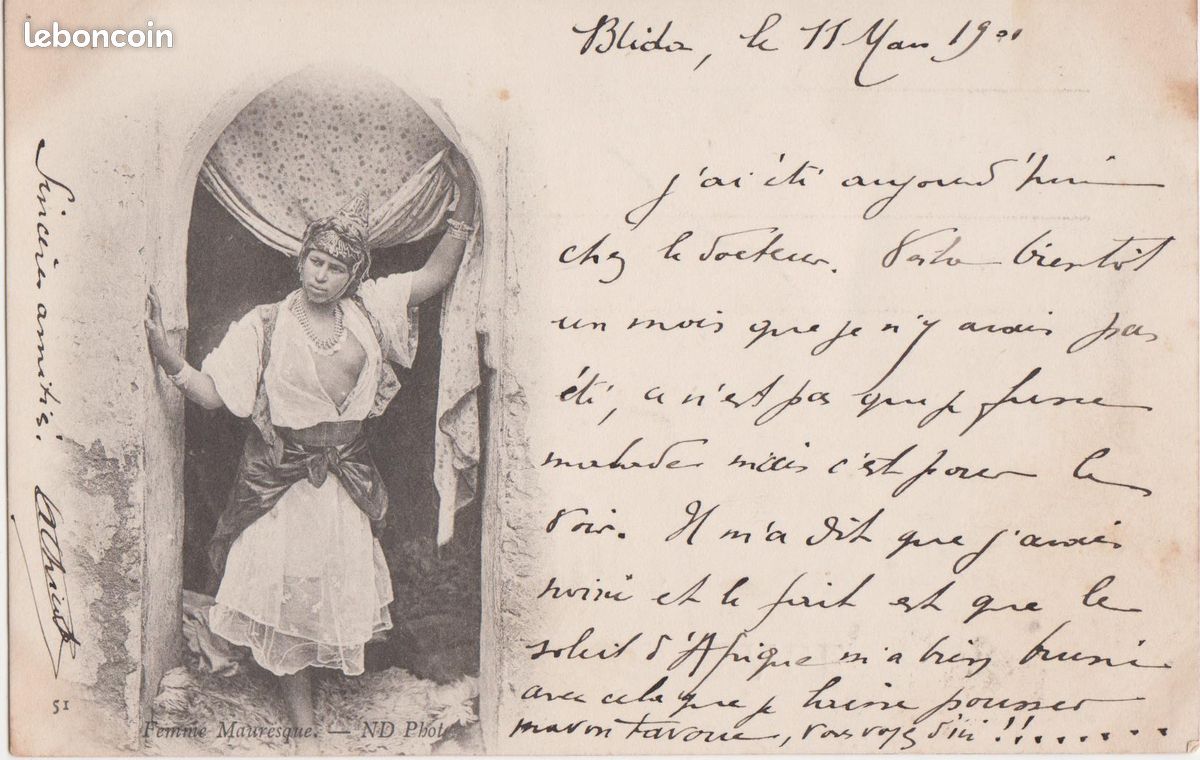 leboncoin
Blida, le 11 Mars 1901
j'ai été aujourd'hui
chez le docteur. Voila bientôt
un mois que je n'y avais pas
été, ce n'est pas que je fusse
malade mais c'est pour le
voir. Il m'a dit que j'avais
noirci et le fait est que le
soleil d'Afrique m'a bien bruni
avec cela que je laisse pousser
ma vous voyez d'ici !!........
Sincères amitiés.
51
Femme Mauresque. — ND Phot.